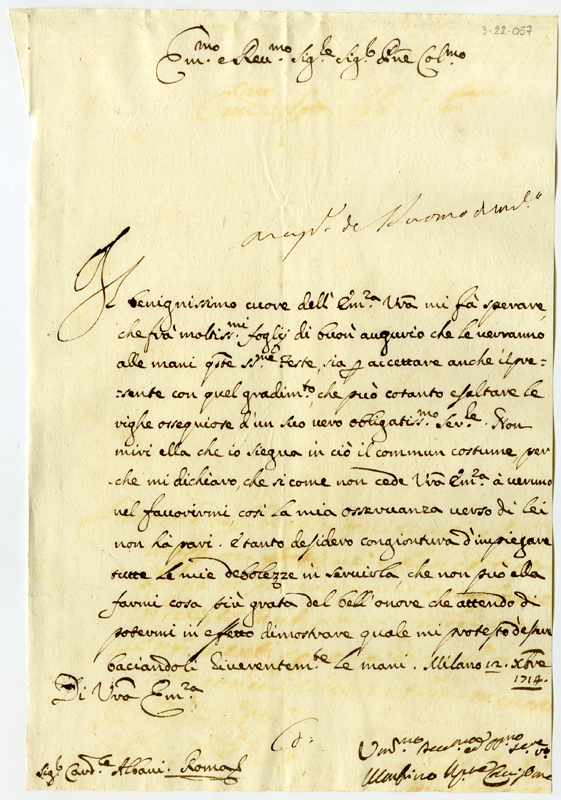 3-22-057
Em.mo e Reu.mo Sig.re Sig.r Pne Col.mo
Il benignissimo cuore dell' Em.za Vrã mi fà sperare,
che frà moltiss.mi foglij di buon augurio che le verranno
alle mani qste ss.me feste, sia p accettare anche il pre-
-sente con quel gradim.to, che può cotanto esaltare le
righe ossequiose d'un suo vero obbligatiss.mo Ser.re. Non
miri ella che io siegua in ciò il commun costume, per
che mi dichiaro, che si come non cede Vrã Em.za à veruno
nel favorirmi, cosi la mia osservanza verso di lei
non hà pari. E tanto desidero congiontura d'impiegare
tutte le mie debolezze in servirla, che non può ella
farmi cosa più grata del bell'onore che attendo di
potermi in effetto dimostrare quale mi protesto d'essere
baciandoli riverentem.te le mani. Milano 12. Xbre
1714.
Di Vrã Em.za
Sig.r Card.le Albani. Roma